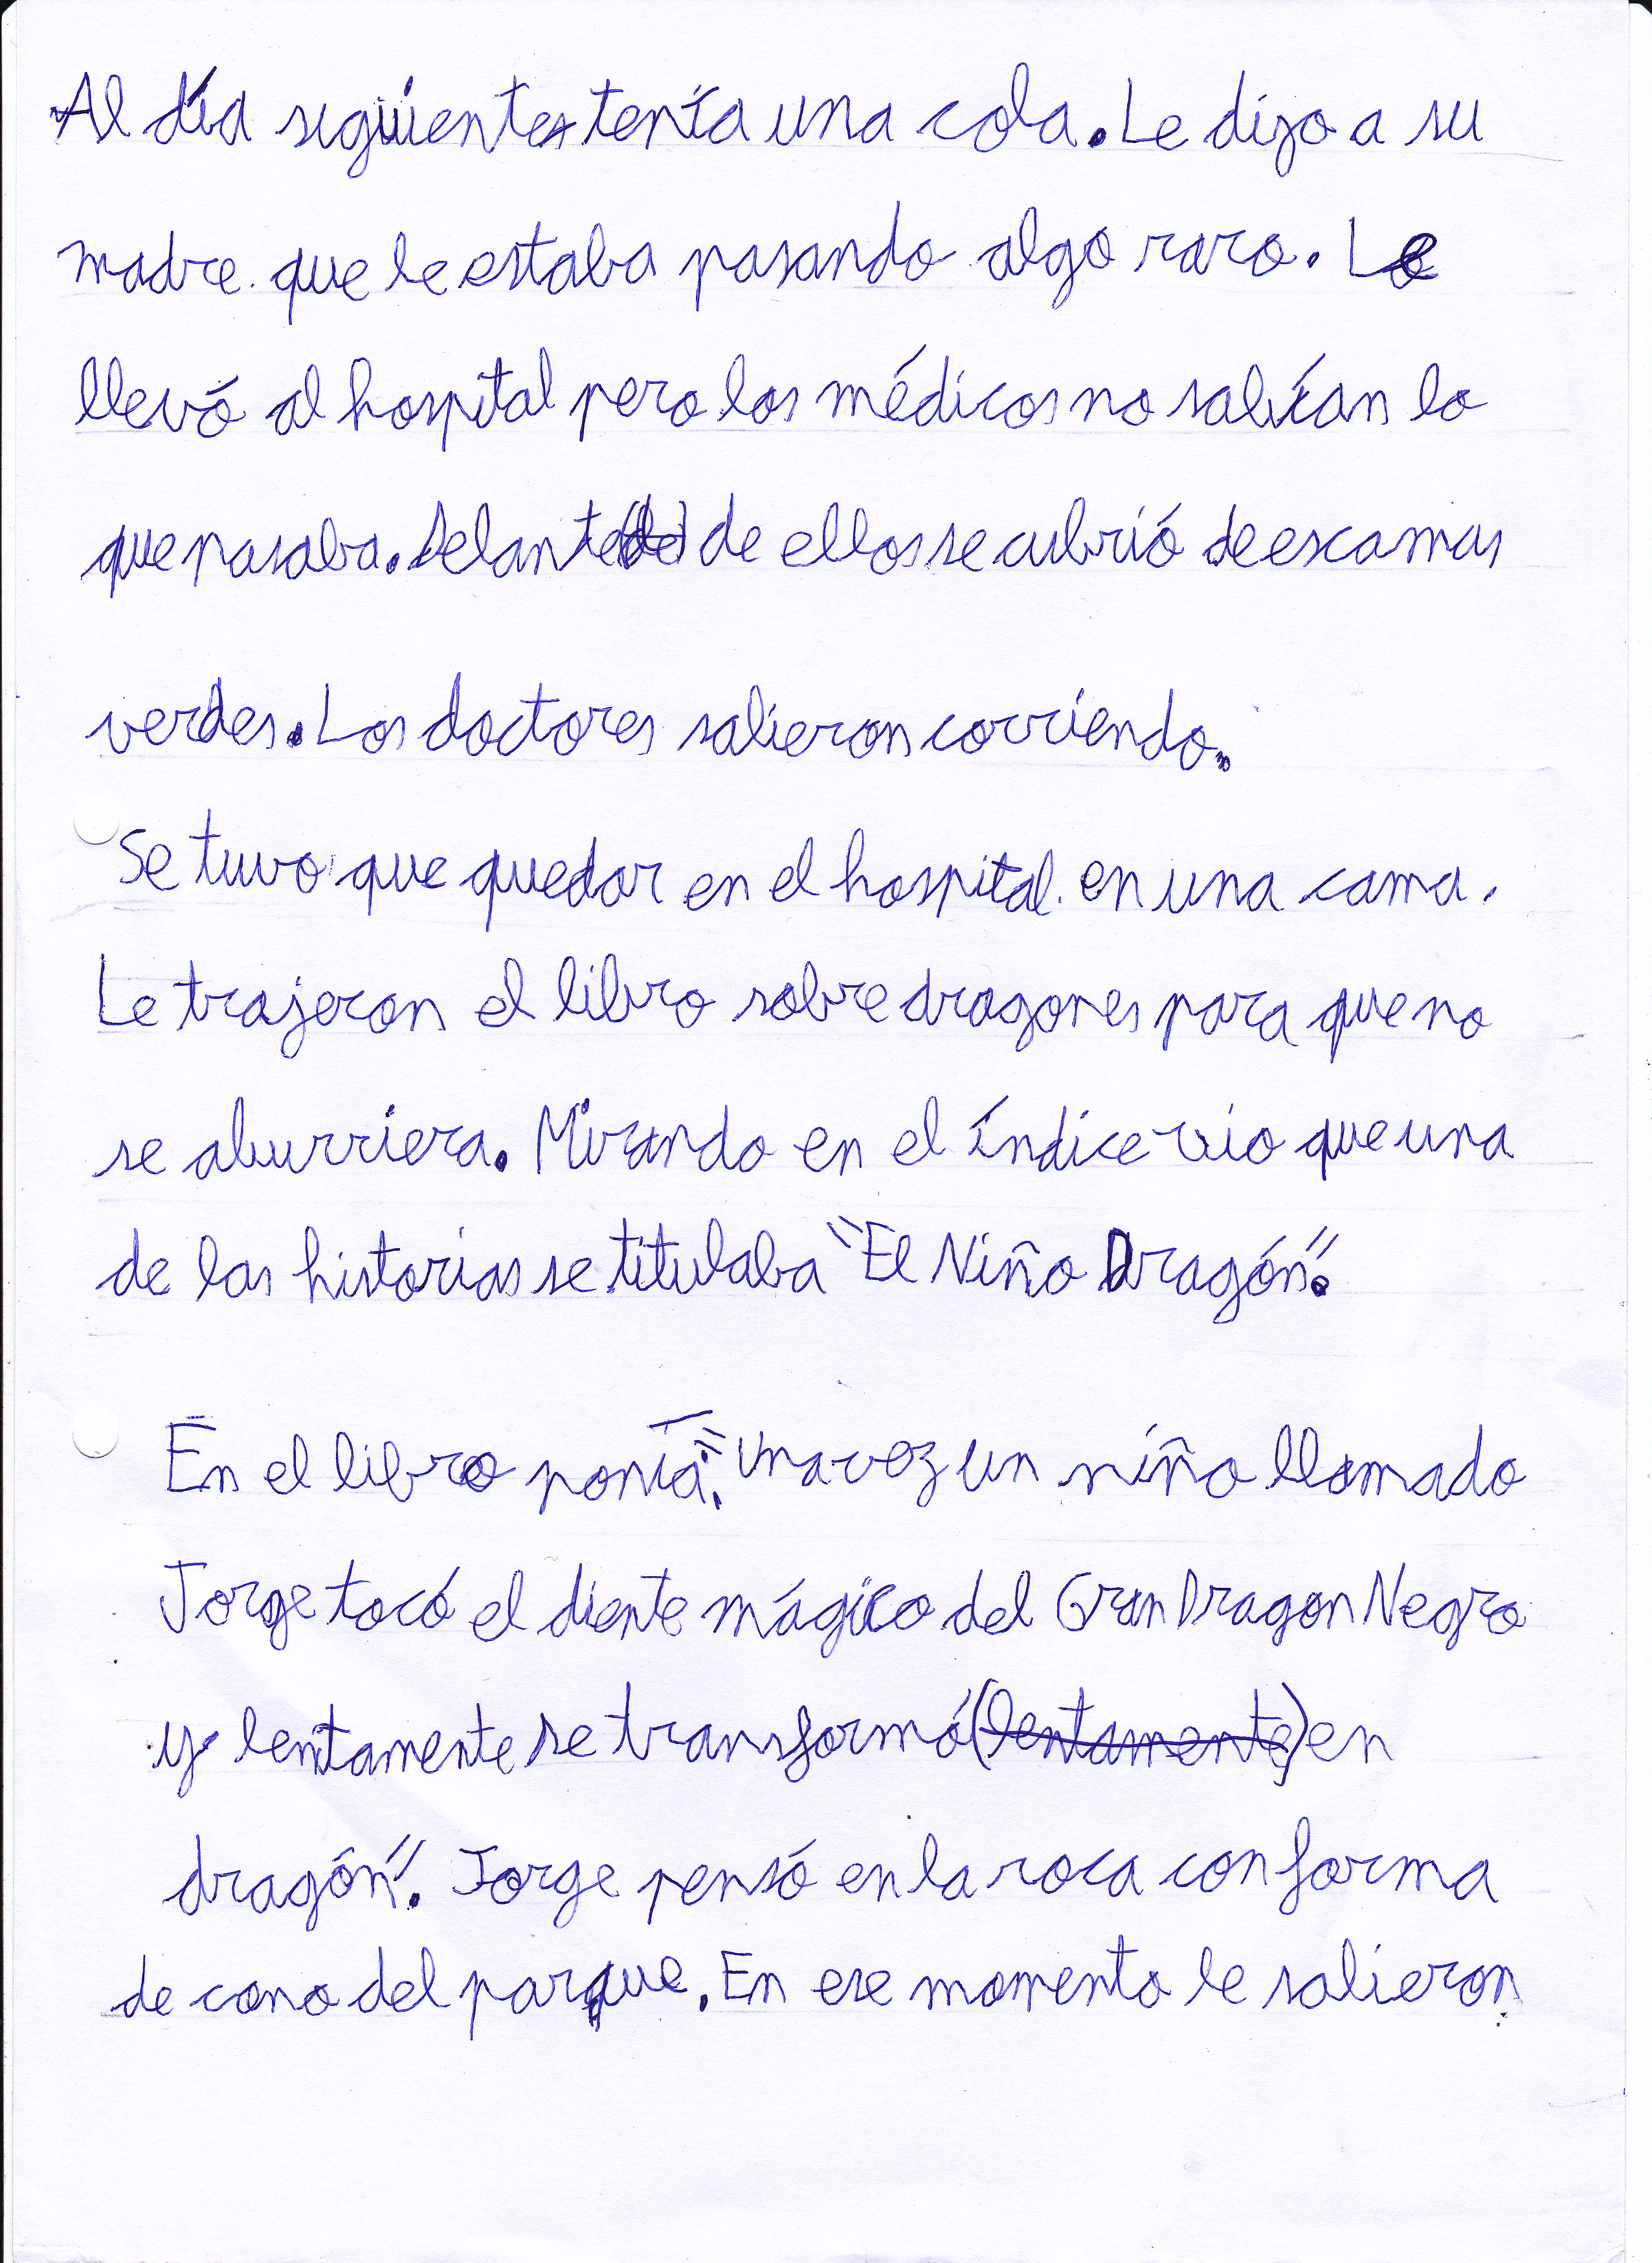 Al día siguiente tenía una cola. Le dijo a su
madre que le estaba pasando algo raro. Le
llevó al hospital pero los médicos no sabían lo
que pasaba. Delante (de) de ellos se cubrió de escamas
verdes. Los doctores salieron corriendo.
Se tuvo que quedar en el hospital en una cama.
Le trajeron el libro sobre dragones para que no
se aburriera. Mirando en el índice vio que una
de las historias se titulaba "El Niño Dragón".
En el libro ponía: "Una vez un niño llamado
Jorge tocó el diente mágico del Gran Dragon Negro
y lentamente se transformó (lentamente) en
dragón". Jorge pensó en la roca con forma
de cono del parque. En ese momento le salieron